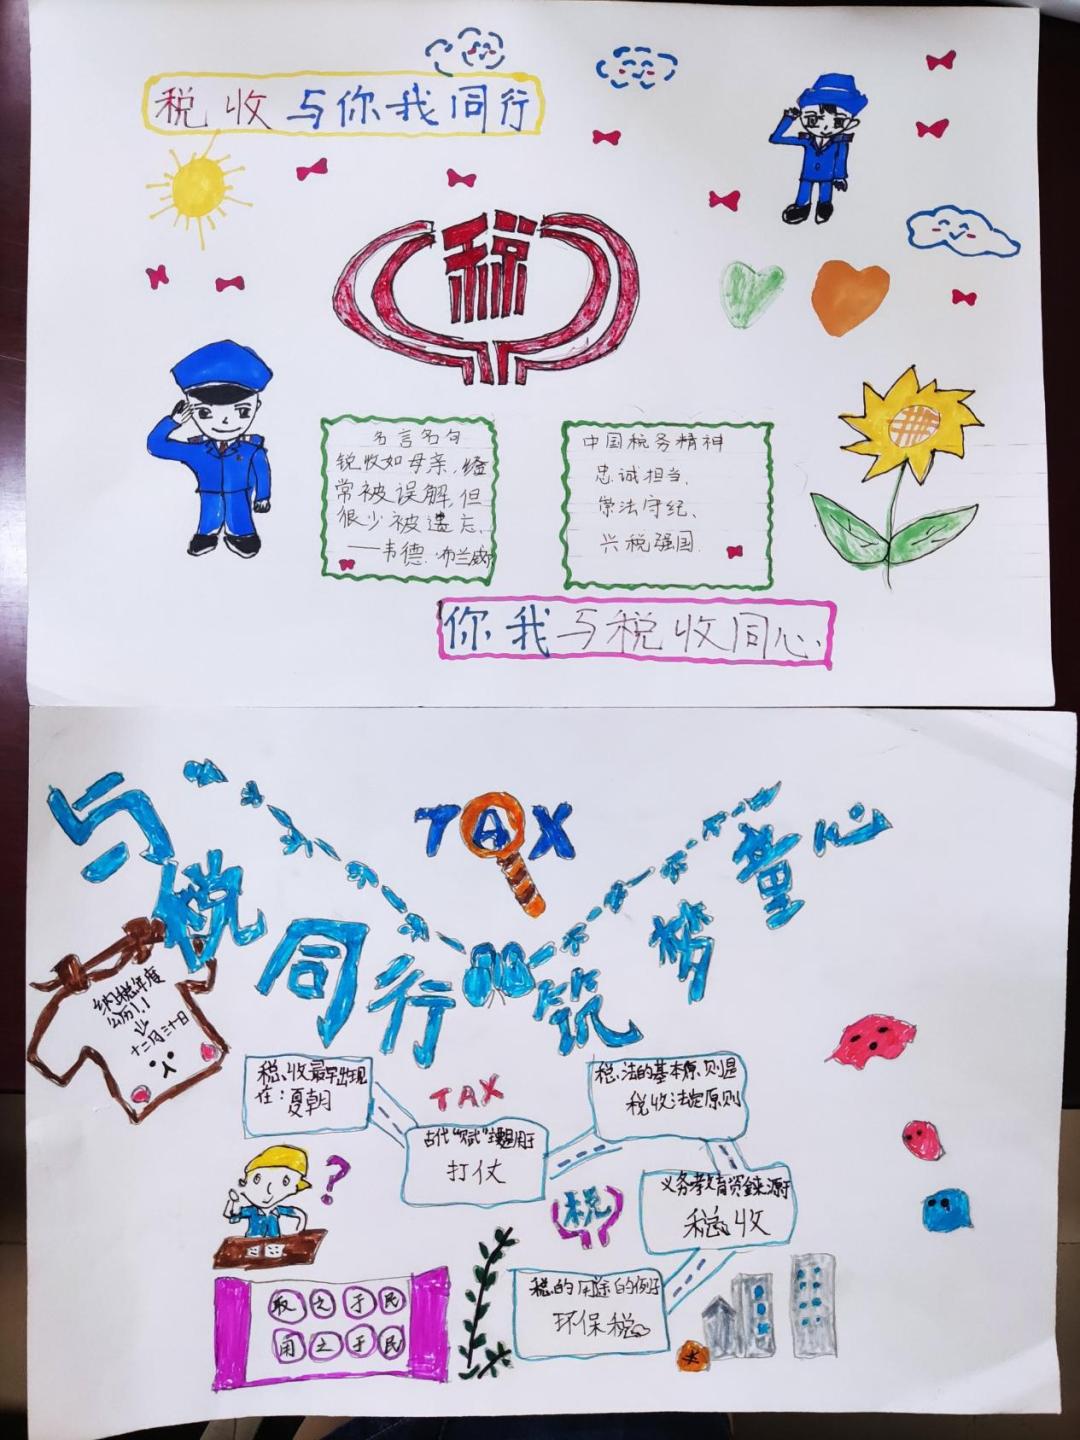 税收与你我同行
税
名言名句
税收如母亲,经
常被误解,但
很少被遗忘、
——韦德·布兰威尔
中国税务精神
忠诚担当、
崇法守纪、
兴税强国.
你我与税收同心、
TAX
与税同行 筑梦童心
纳税年度
公历1.1
十二月三十日
税收最早出现
在:夏朝
TAX
古代"赋"主要用于
打仗
税法的基本原则是
税收法定原则
义务教育资金来源于
税收
税
?
税的用途的例子
环保税
取之于民
用之于民